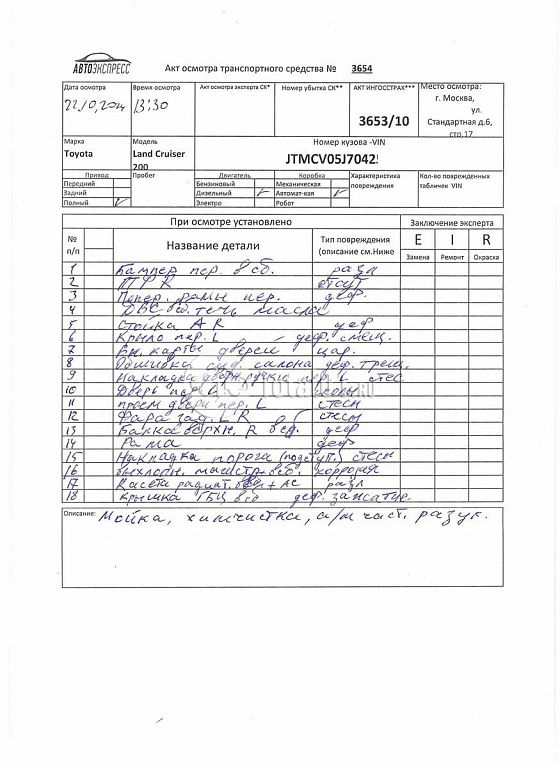 АВТОЭКСПРЕСС
Акт осмотра транспортного средства № 3654
Дата осмотра Время осмотра Акт осмотра эксперта СК* Номер убытка СК** АКТ ИНГОССТРАХ*** Место осмотра:
13:30 3653/10 г. Москва,
ул.
Стандартная д.6,
стр.17
Марка Модель Номер кузова -VIN
Toyota Land Cruiser 200 JTMCV05J7042
Привод Пробег Двигатель Коробка Характеристика повреждения Кол-во поврежденных табличек VIN
Передний Бензиновый Механическая
Задний Дизельный Автомат-кая
Полный Электро Робот
При осмотре установлено Заключение эксперта
№ п/п Название детали Тип повреждения (описание см.Ниже E I R
Замена Ремонт Окраска
1 Бампер пер. в сб. разл
2 отсут
3 рамы пер. деф.
4 ДВС течь масла
5 Стойка A R деф
6 Крыло пер. L деф. смещ.
7 Вн. карты дверей цар.
8 Обшивка салона деф. трещ.
9 Накладка ручки пер. L
10 Дверь пер. L
11 проем двери пер. L стесн
12 Фара зад. L R
13 R деф
14 Рама деф
15 Накладка порога стесн
16 коррозия
17 + АС разл
18 Крышка ГБЦ деф. зажатие.
Описание: Мойка, химчистка, а/м част. разук.